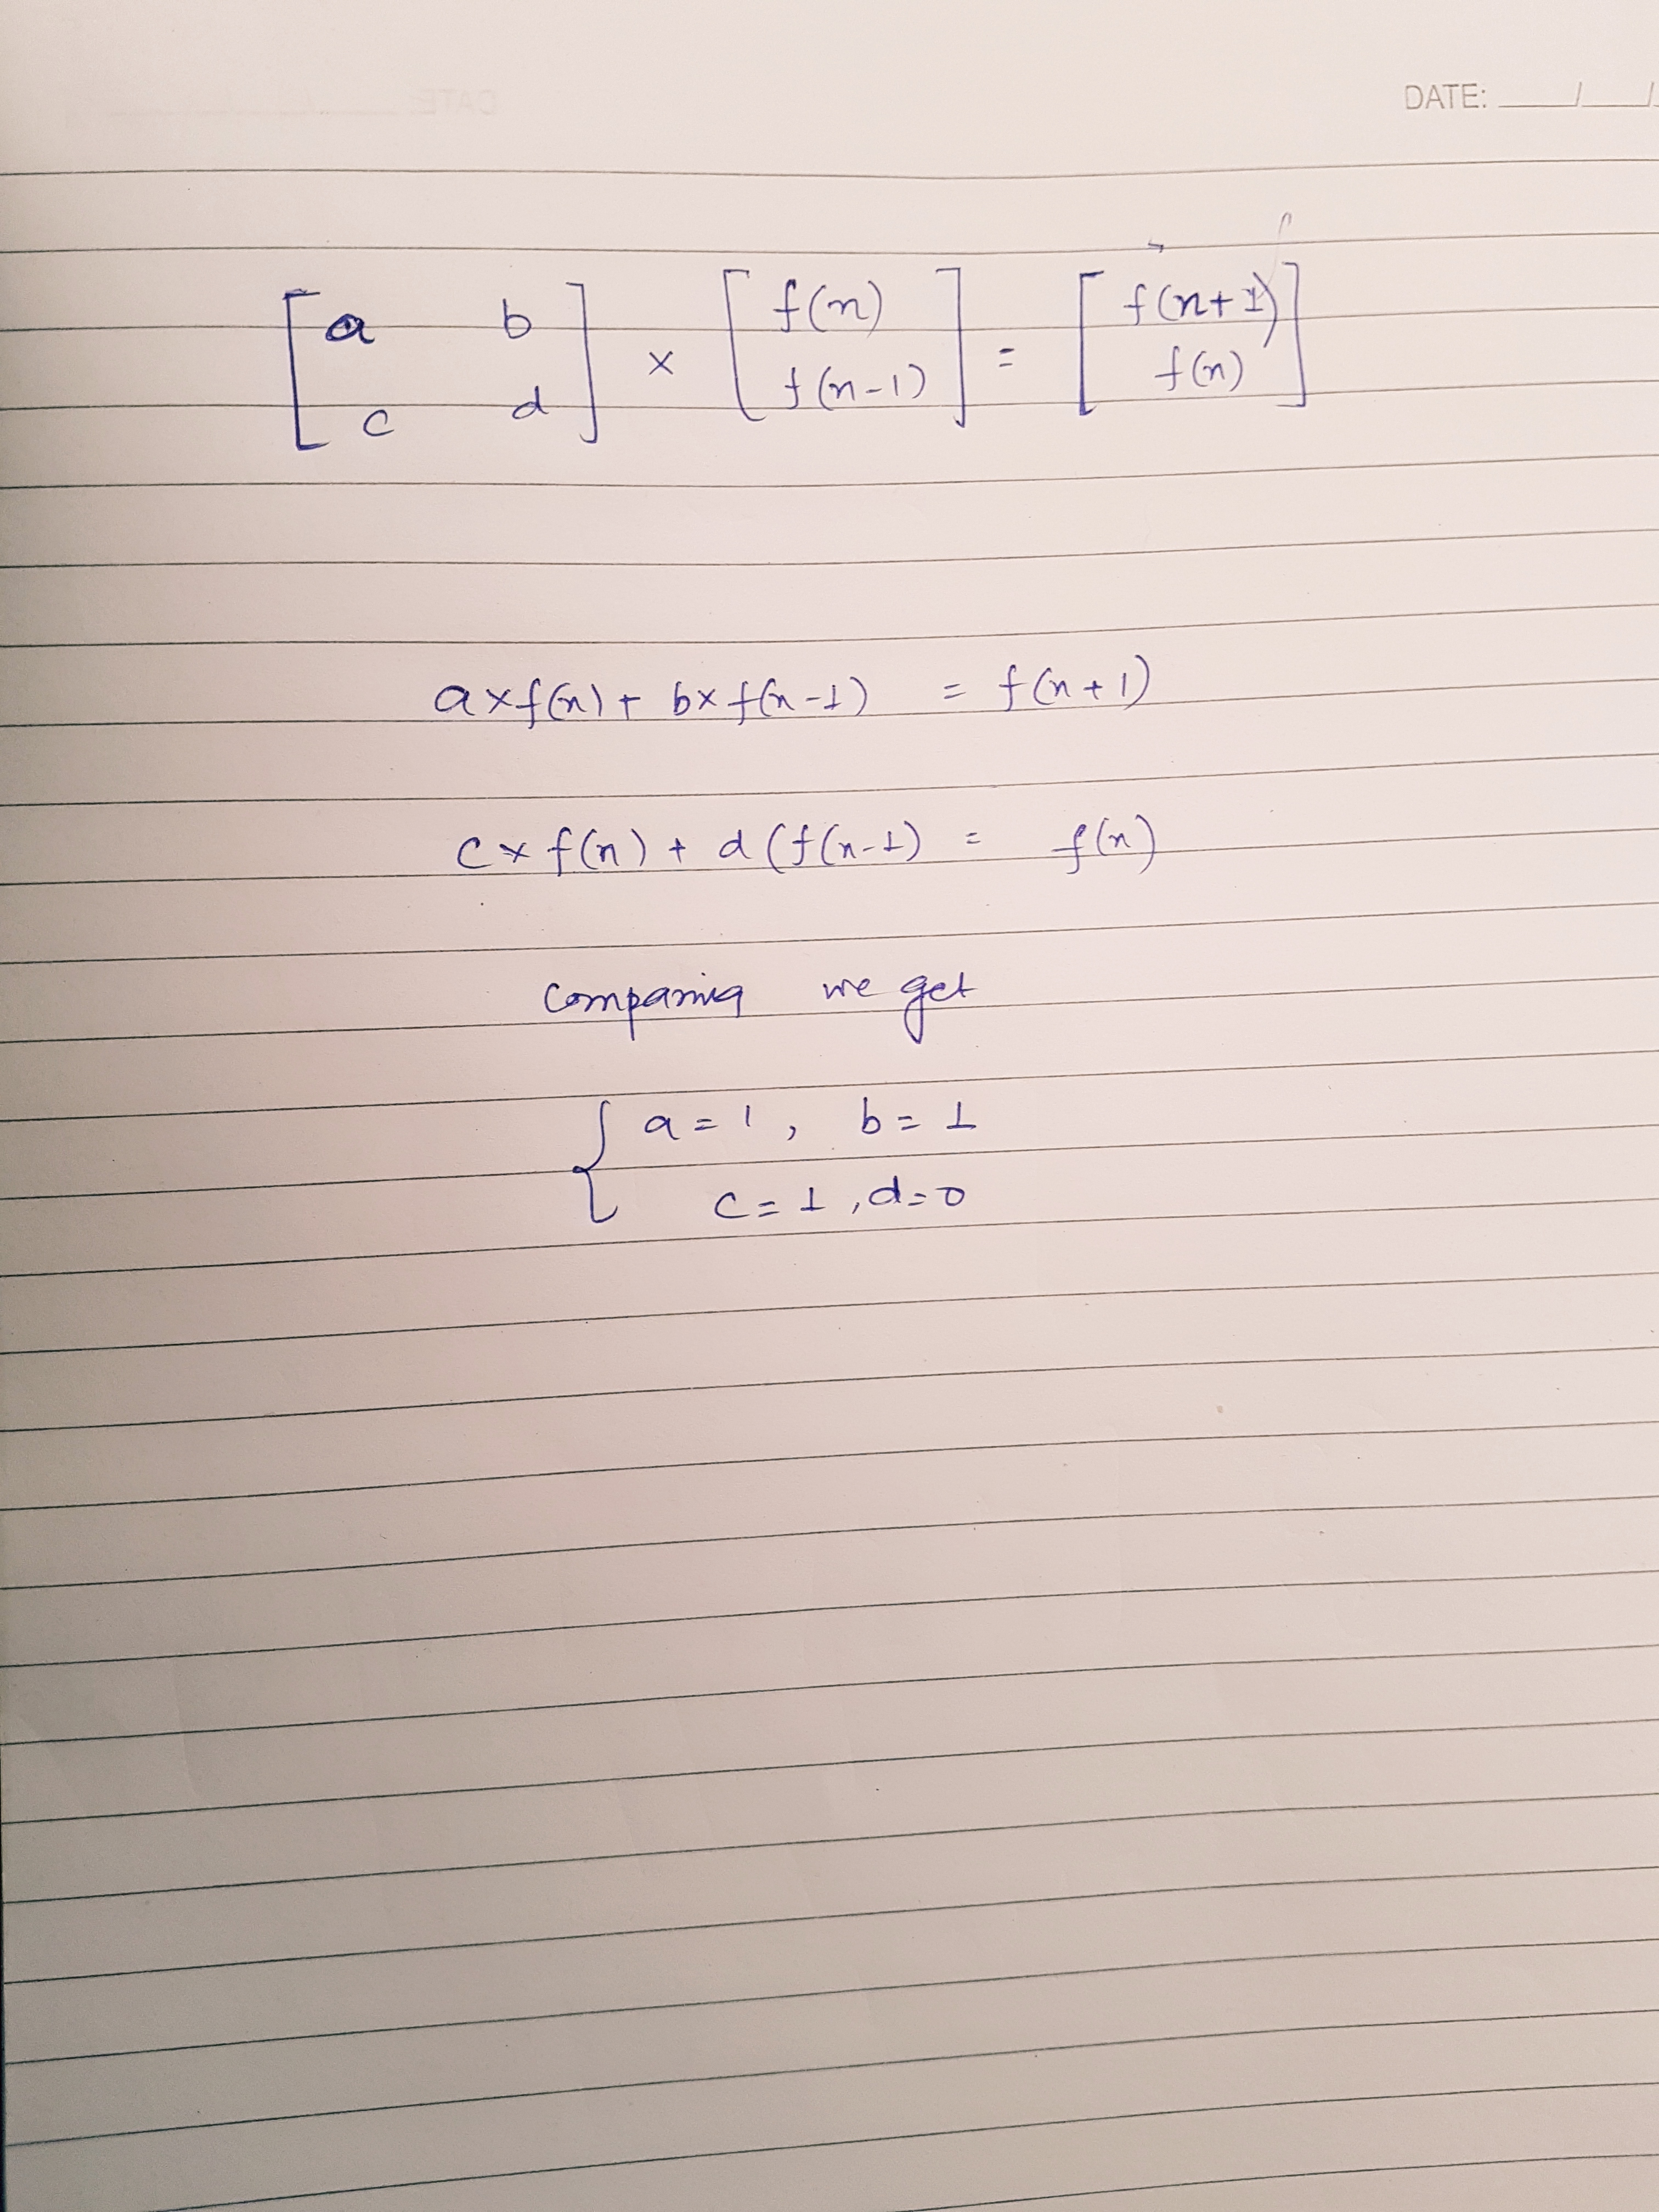 DATE: ___/___/
[ a b ] × [ f(n) ] = [ f(n+1) ]
[ c d ] [ f(n-1) ] [ f(n) ]
a×f(n) + b×f(n-1) = f(n+1)
c× f(n) + d (f(n-1) = f(n)
Comparing we get
{ a = 1, b = 1
c = 1, d = 0